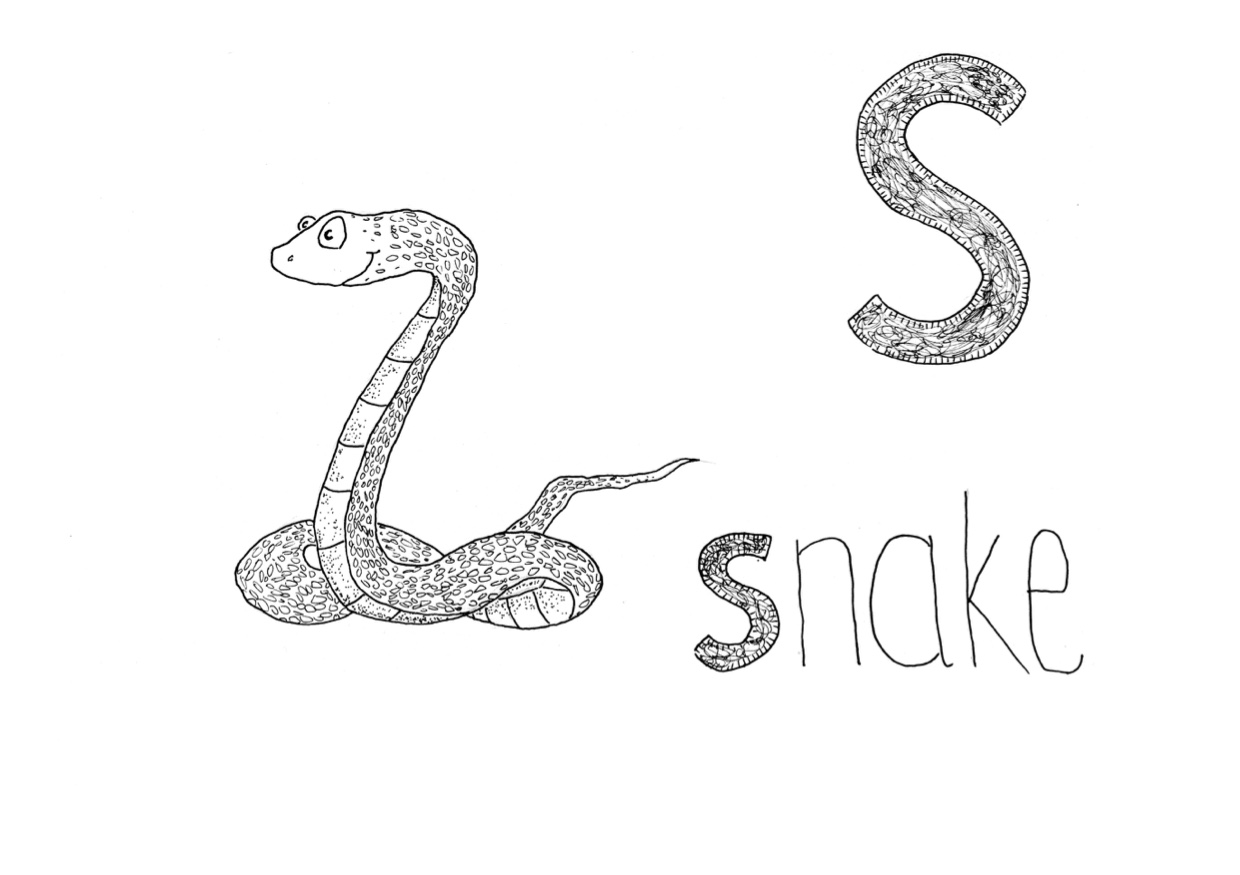 S
snake